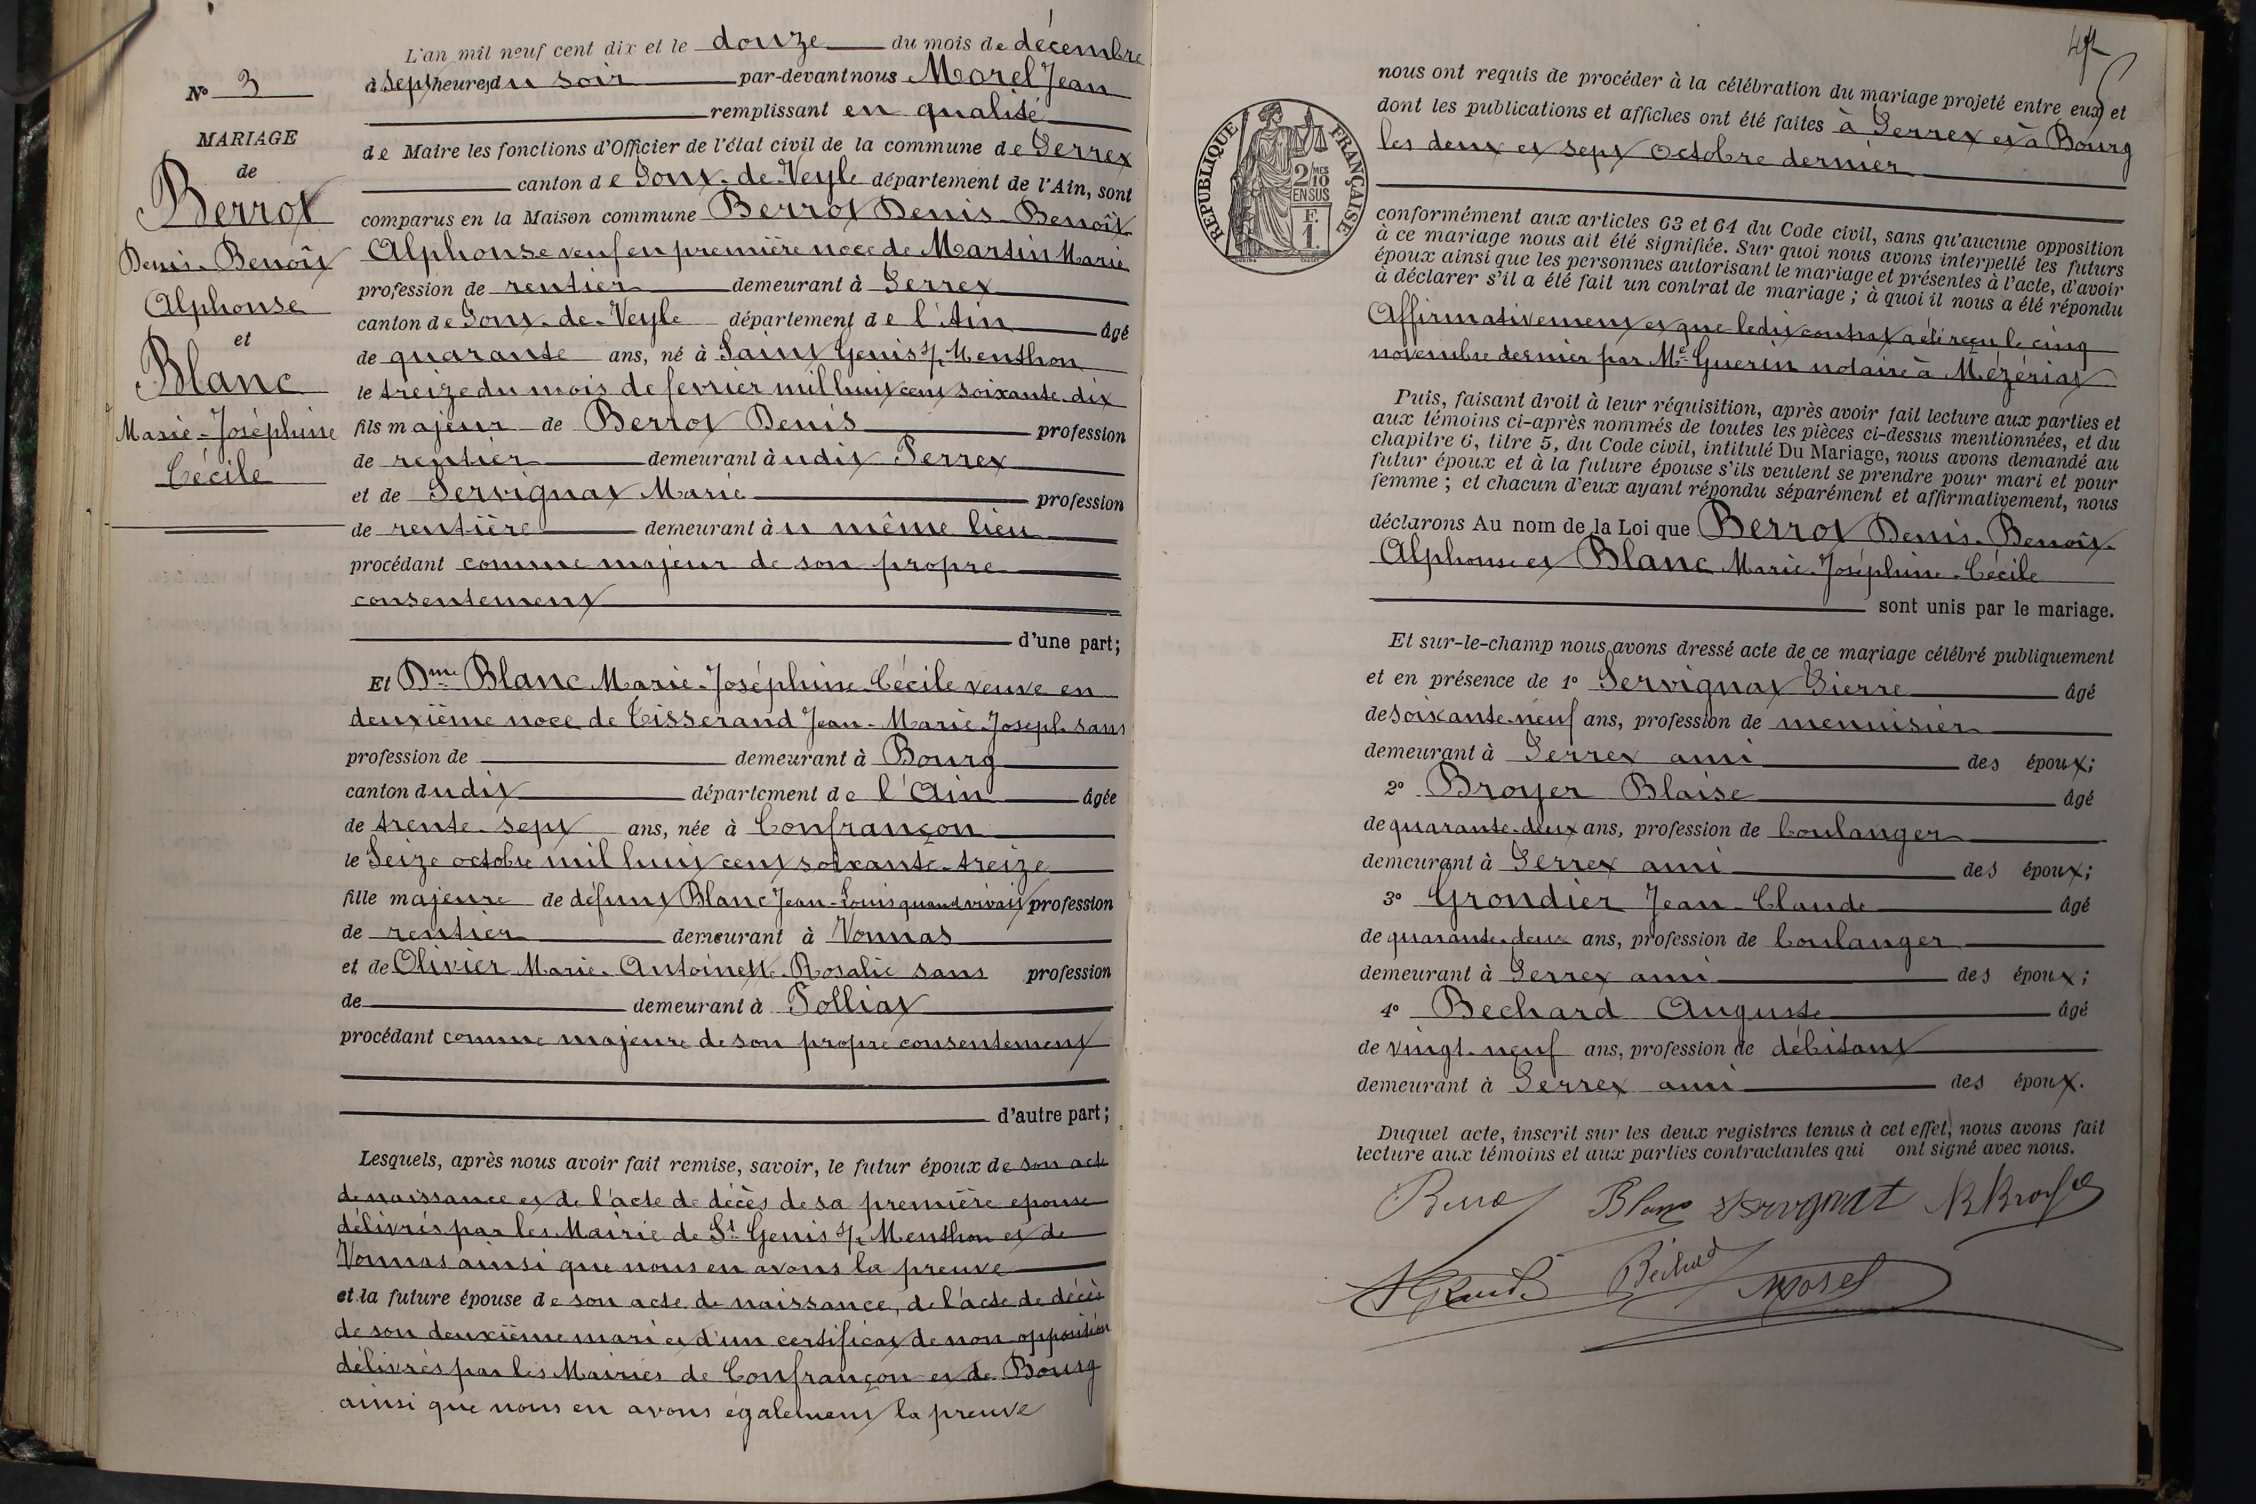 N° 3
MARIAGE
de
Berrot
Denis-Benoît
Alphonse
et
Blanc
Marie-Joséphine
Cécile
L'an mil neuf cent dix et le douze du mois de décembre
à Sept heures du soir par-devant nous Morel Jean
remplissant en qualité
de Maire les fonctions d'Officier de l'état civil de la commune de Perrex
canton de Pont-de-Veyle département de l'Ain, sont
comparus en la Maison commune Berrot Denis-Benoît
Alphonse veuf en première noce de Martin Marie
profession de rentier demeurant à Perrex
canton de Pont-de-Veyle département de l'Ain âgé
de quarante ans, né à Saint Genis s/ Menthon
le treize du mois de fevrier mil huit cent soixante-dix
fils majeur de Berrot Denis profession
de rentier demeurant à udit Perrex
et de Servignat Marie profession
de rentière demeurant à u même lieu
procédant comme majeur de son propre
consentement
d'une part;
Et Dme Blanc Marie-Joséphine-Cécile veuve en
deuxième noce de Tisserand Jean-Marie-Joseph sans
profession de demeurant à Bourg
canton dudit département de l'Ain âgée
de trente-sept ans, née à Confrançon
le Seize octobre mil huit cent soixante-treize
fille majeure de défunt Blanc Jean-Louis quand vivait profession
de rentier demeurant à Vonnas
et de Olivier Marie-Antoinette-Rosalie sans profession
de demeurant à Polliat
procédant comme majeure de son propre consentement
d'autre part;
Lesquels, après nous avoir fait remise, savoir, le futur époux de son acte
de naissance et de l'acte de décès de sa première epouse
délivrés par les Mairie de St Genis s/ Menthon et de
Vonnas ainsi que nous en avons la preuve
et la future épouse de son acte de naissance, de l'acte de décès
de son deuxième mari et d'un certificat de non opposition
délivrés par les Mairies de Confrançon et de Bourg
ainsi que nous en avons également la preuve
RÉPUBLIQUE FRANÇAISE
2/10 MES
EN SUS
F.
1.
nous ont requis de procéder à la célébration du mariage projeté entre eux et
dont les publications et affiches ont été faites à Perrex et à Bourg
les deux et sept Octobre dernier
conformément aux articles 63 et 64 du Code civil, sans qu'aucune opposition
à ce mariage nous ait été signifiée. Sur quoi nous avons interpellé les futurs
époux ainsi que les personnes autorisant le mariage et présentes à l'acte, d'avoir
à déclarer s'il a été fait un contrat de mariage; à quoi il nous a été répondu
Affirmativement et que ledit contrat a été reçu le cinq
novembre dernier par Me Guerin notaire à Mézériat
Puis, faisant droit à leur réquisition, après avoir fait lecture aux parties et
aux témoins ci-après nommés de toutes les pièces ci-dessus mentionnées, et du
chapitre 6, titre 5, du Code civil, intitulé Du Mariage, nous avons demandé au
futur époux et à la future épouse s'ils veulent se prendre pour mari et pour
femme; et chacun d'eux ayant répondu séparément et affirmativement, nous
déclarons Au nom de la Loi que Berrot Denis-Benoît-
Alphonse et Blanc Marie-Joséphine-Cécile
sont unis par le mariage.
Et sur-le-champ nous avons dressé acte de ce mariage célébré publiquement
et en présence de 1° Servignat Pierre âgé
de soixante-neuf ans, profession de menuisier
demeurant à Perrex ami des époux;
2° Broyer Blaise âgé
de quarante-deux ans, profession de boulanger
demeurant à Perrex ami des époux;
3° Grondier Jean-Claude âgé
de quarante-deux ans, profession de boulanger
demeurant à Perrex ami des époux;
4° Bechard Auguste âgé
de vingt-neuf ans, profession de débitant
demeurant à Perrex ami des époux.
Duquel acte, inscrit sur les deux registres tenus à cet effet, nous avons fait
lecture aux témoins et aux parties contractantes qui ont signé avec nous.
Berrot Blanc Servignat
Béchard Morel